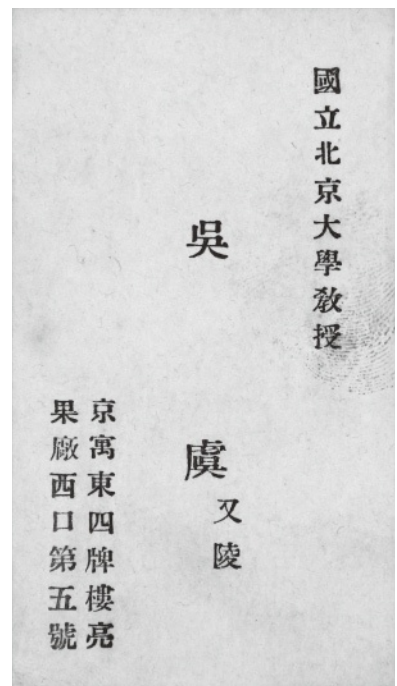 國立北京大學敎授
吳虞
又陵
京寓東四牌樓亮
果廠西口第五號